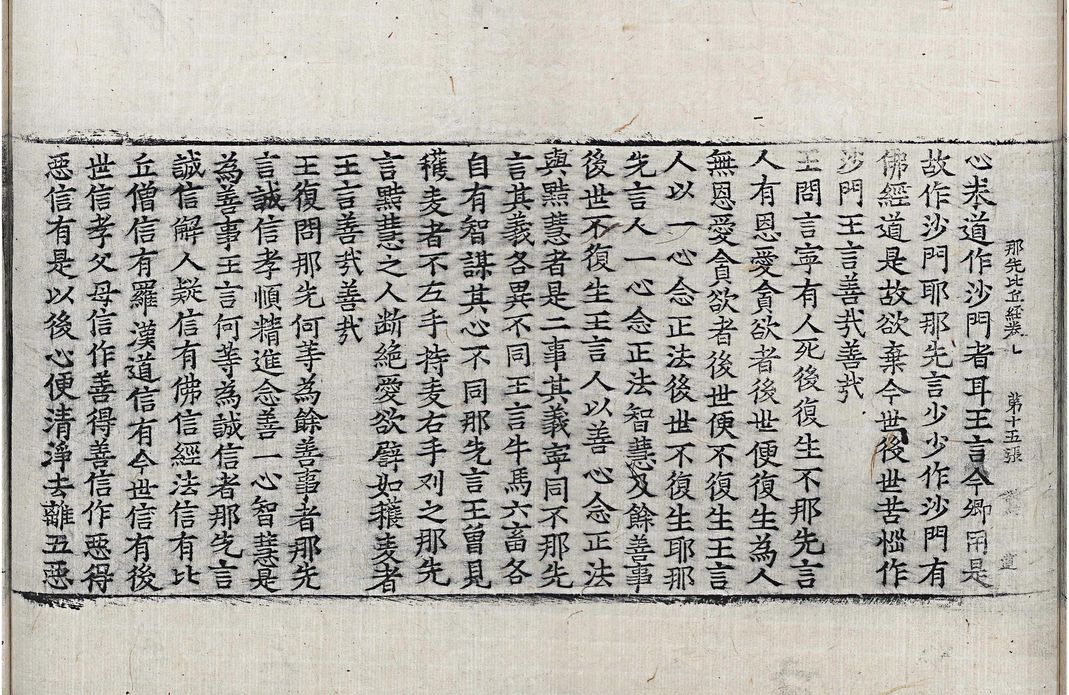 那先比丘經卷上 第十五張
心求道作沙門者耳王言今卿用是
故作沙門耶那先言少少作沙門有
佛經道是故欲棄今世後世苦惱作
沙門王言善㢤善㢤
王問言寧有人死後復生不那先言
人有恩愛貪欲者後世便復生為人
無恩愛貪欲者後世便不復生王言
人以一心念正法後世不復生耶那
先言人一心念正法智慧及餘善事
後世不復生王言人以善心念正法
與黠慧者是二事其義寧同不那先
言其義各異不同王言牛馬六畜各
自有智謀其心不同那先言王曾見
穫麦者不左手持麦右手刈之那先
言黠慧之人断絕愛欲譬如穫麦者
王言善㢤善㢤
王復問那先何等為餘善事者那先
言誠信孝順精進念善一心智慧是
為善事王言何等為誠信者那先言
誠信解人疑信有佛信經法信有比
丘僧信有羅漢道信有今世信有後
世信孝父母信作善得善信作惡得
惡信有是以後心便清淨去離五惡